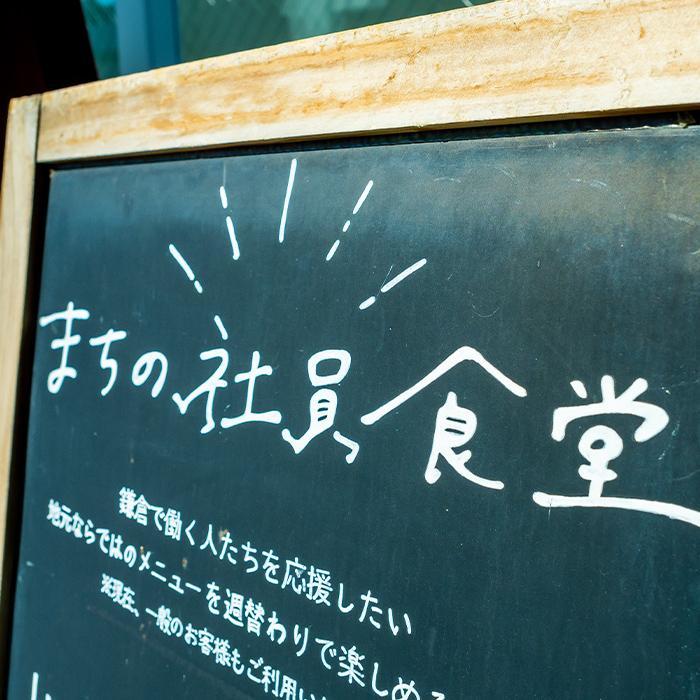 まちの社員食堂
鎌倉で働く人たちを応援したい
地元ならではのメニューを週替わりで楽しめる
※現在、一般のお客様もご利用い